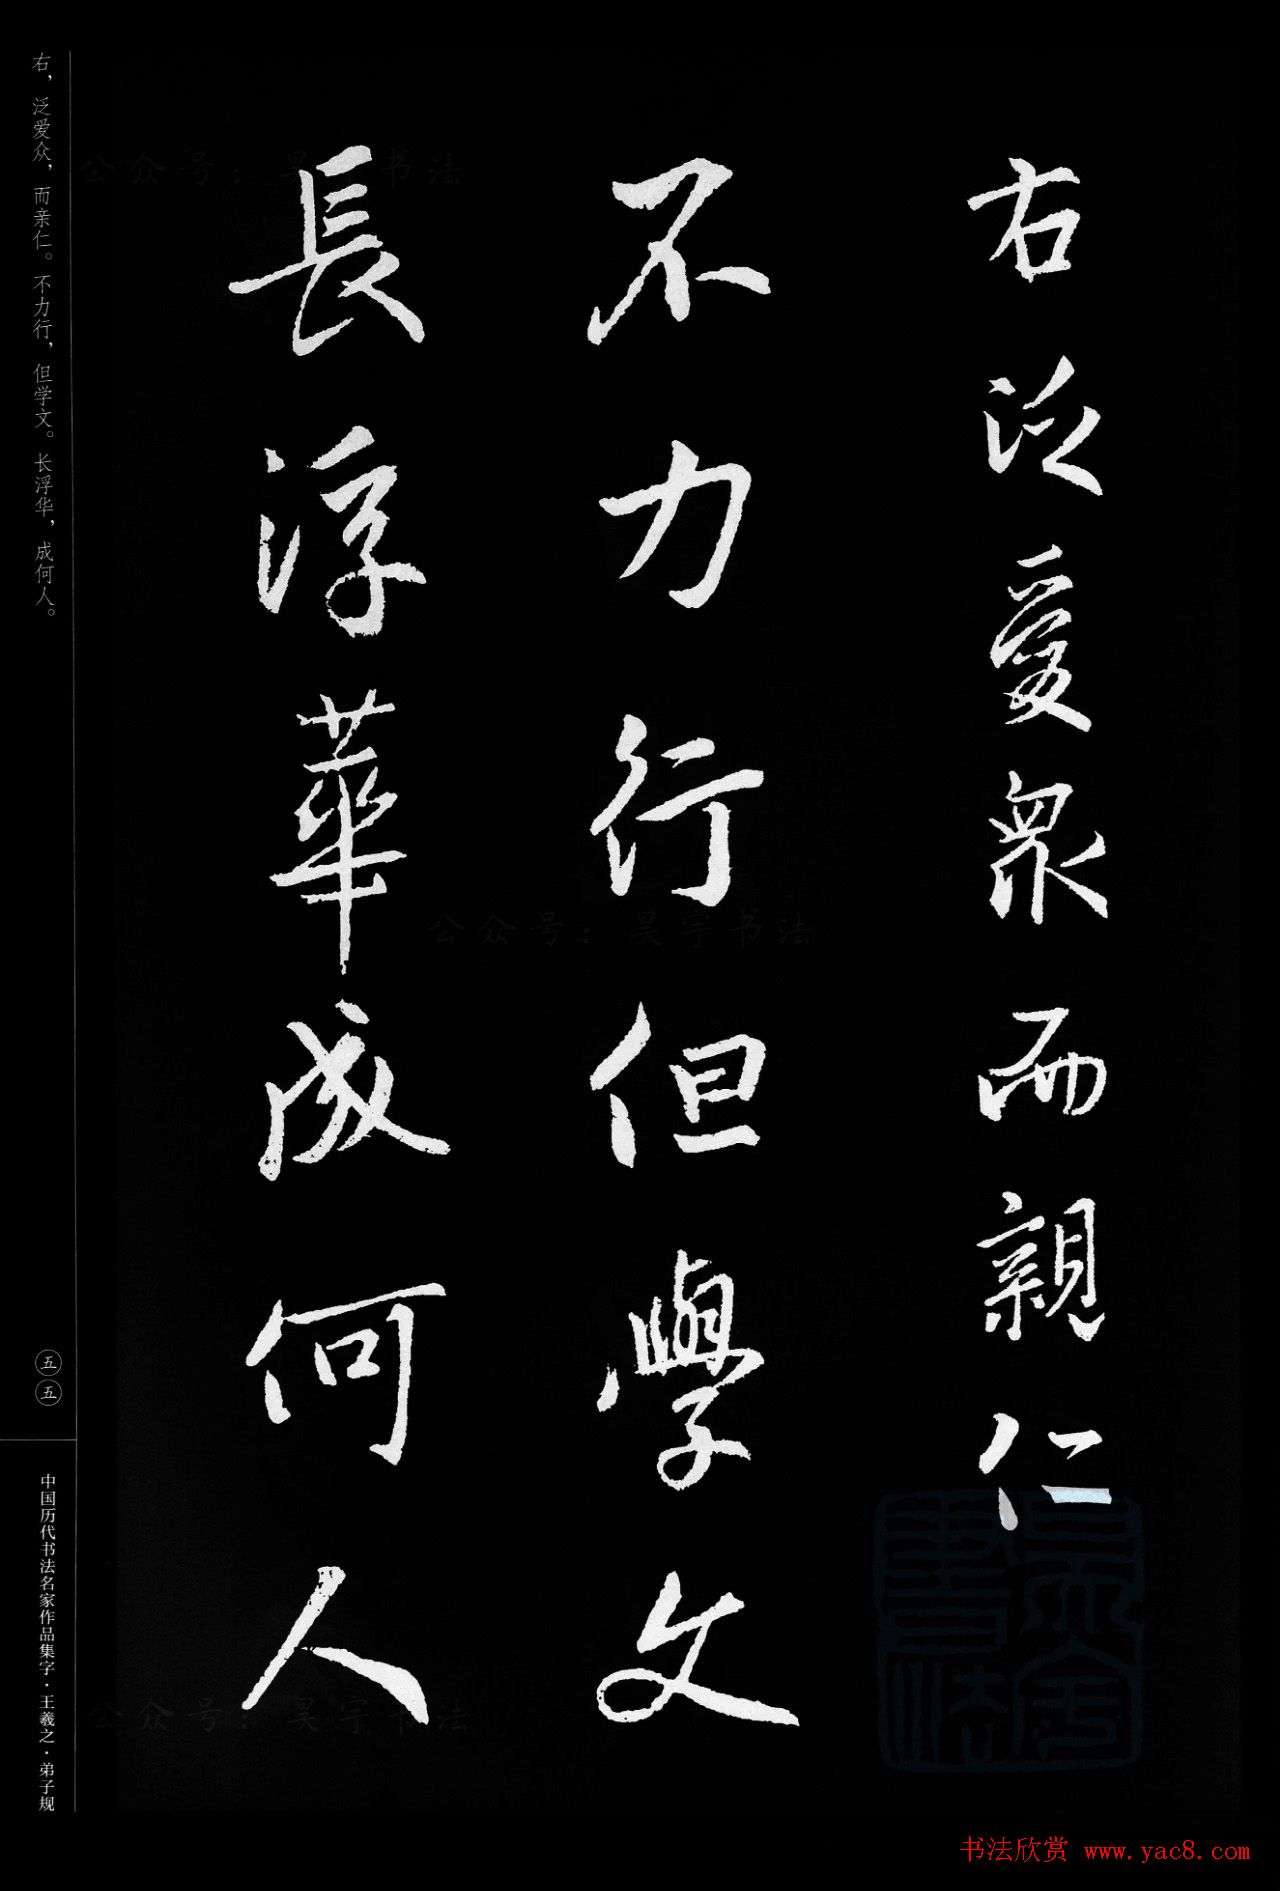 右泛愛衆而親仁
不力行但學文
長浮華成何人
右，泛爱众，而亲仁。不力行，但学文。长浮华，成何人。
五五
中国历代书法名家作品集字·王羲之·弟子规
公众号：昊宇书法
公众号：昊宇书法
公众号：昊宇书法
昊宇書法
书法欣赏 www.yac8.com